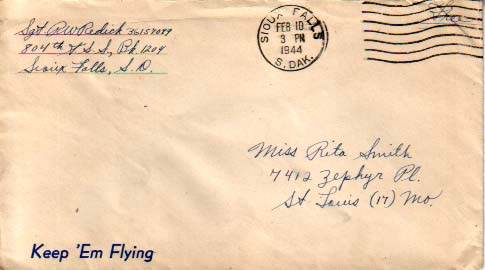 Sgt. R W Redick 36159099
804th T.S.S, Bk. 1209
Sioux Falls, S.D.
SIOUX FALLS
FEB 10
3 PM
1944
S. DAK.
Free
Miss Rita Smith
7412 Zephyr Pl.
St Louis (17) Mo.
Keep 'Em Flying